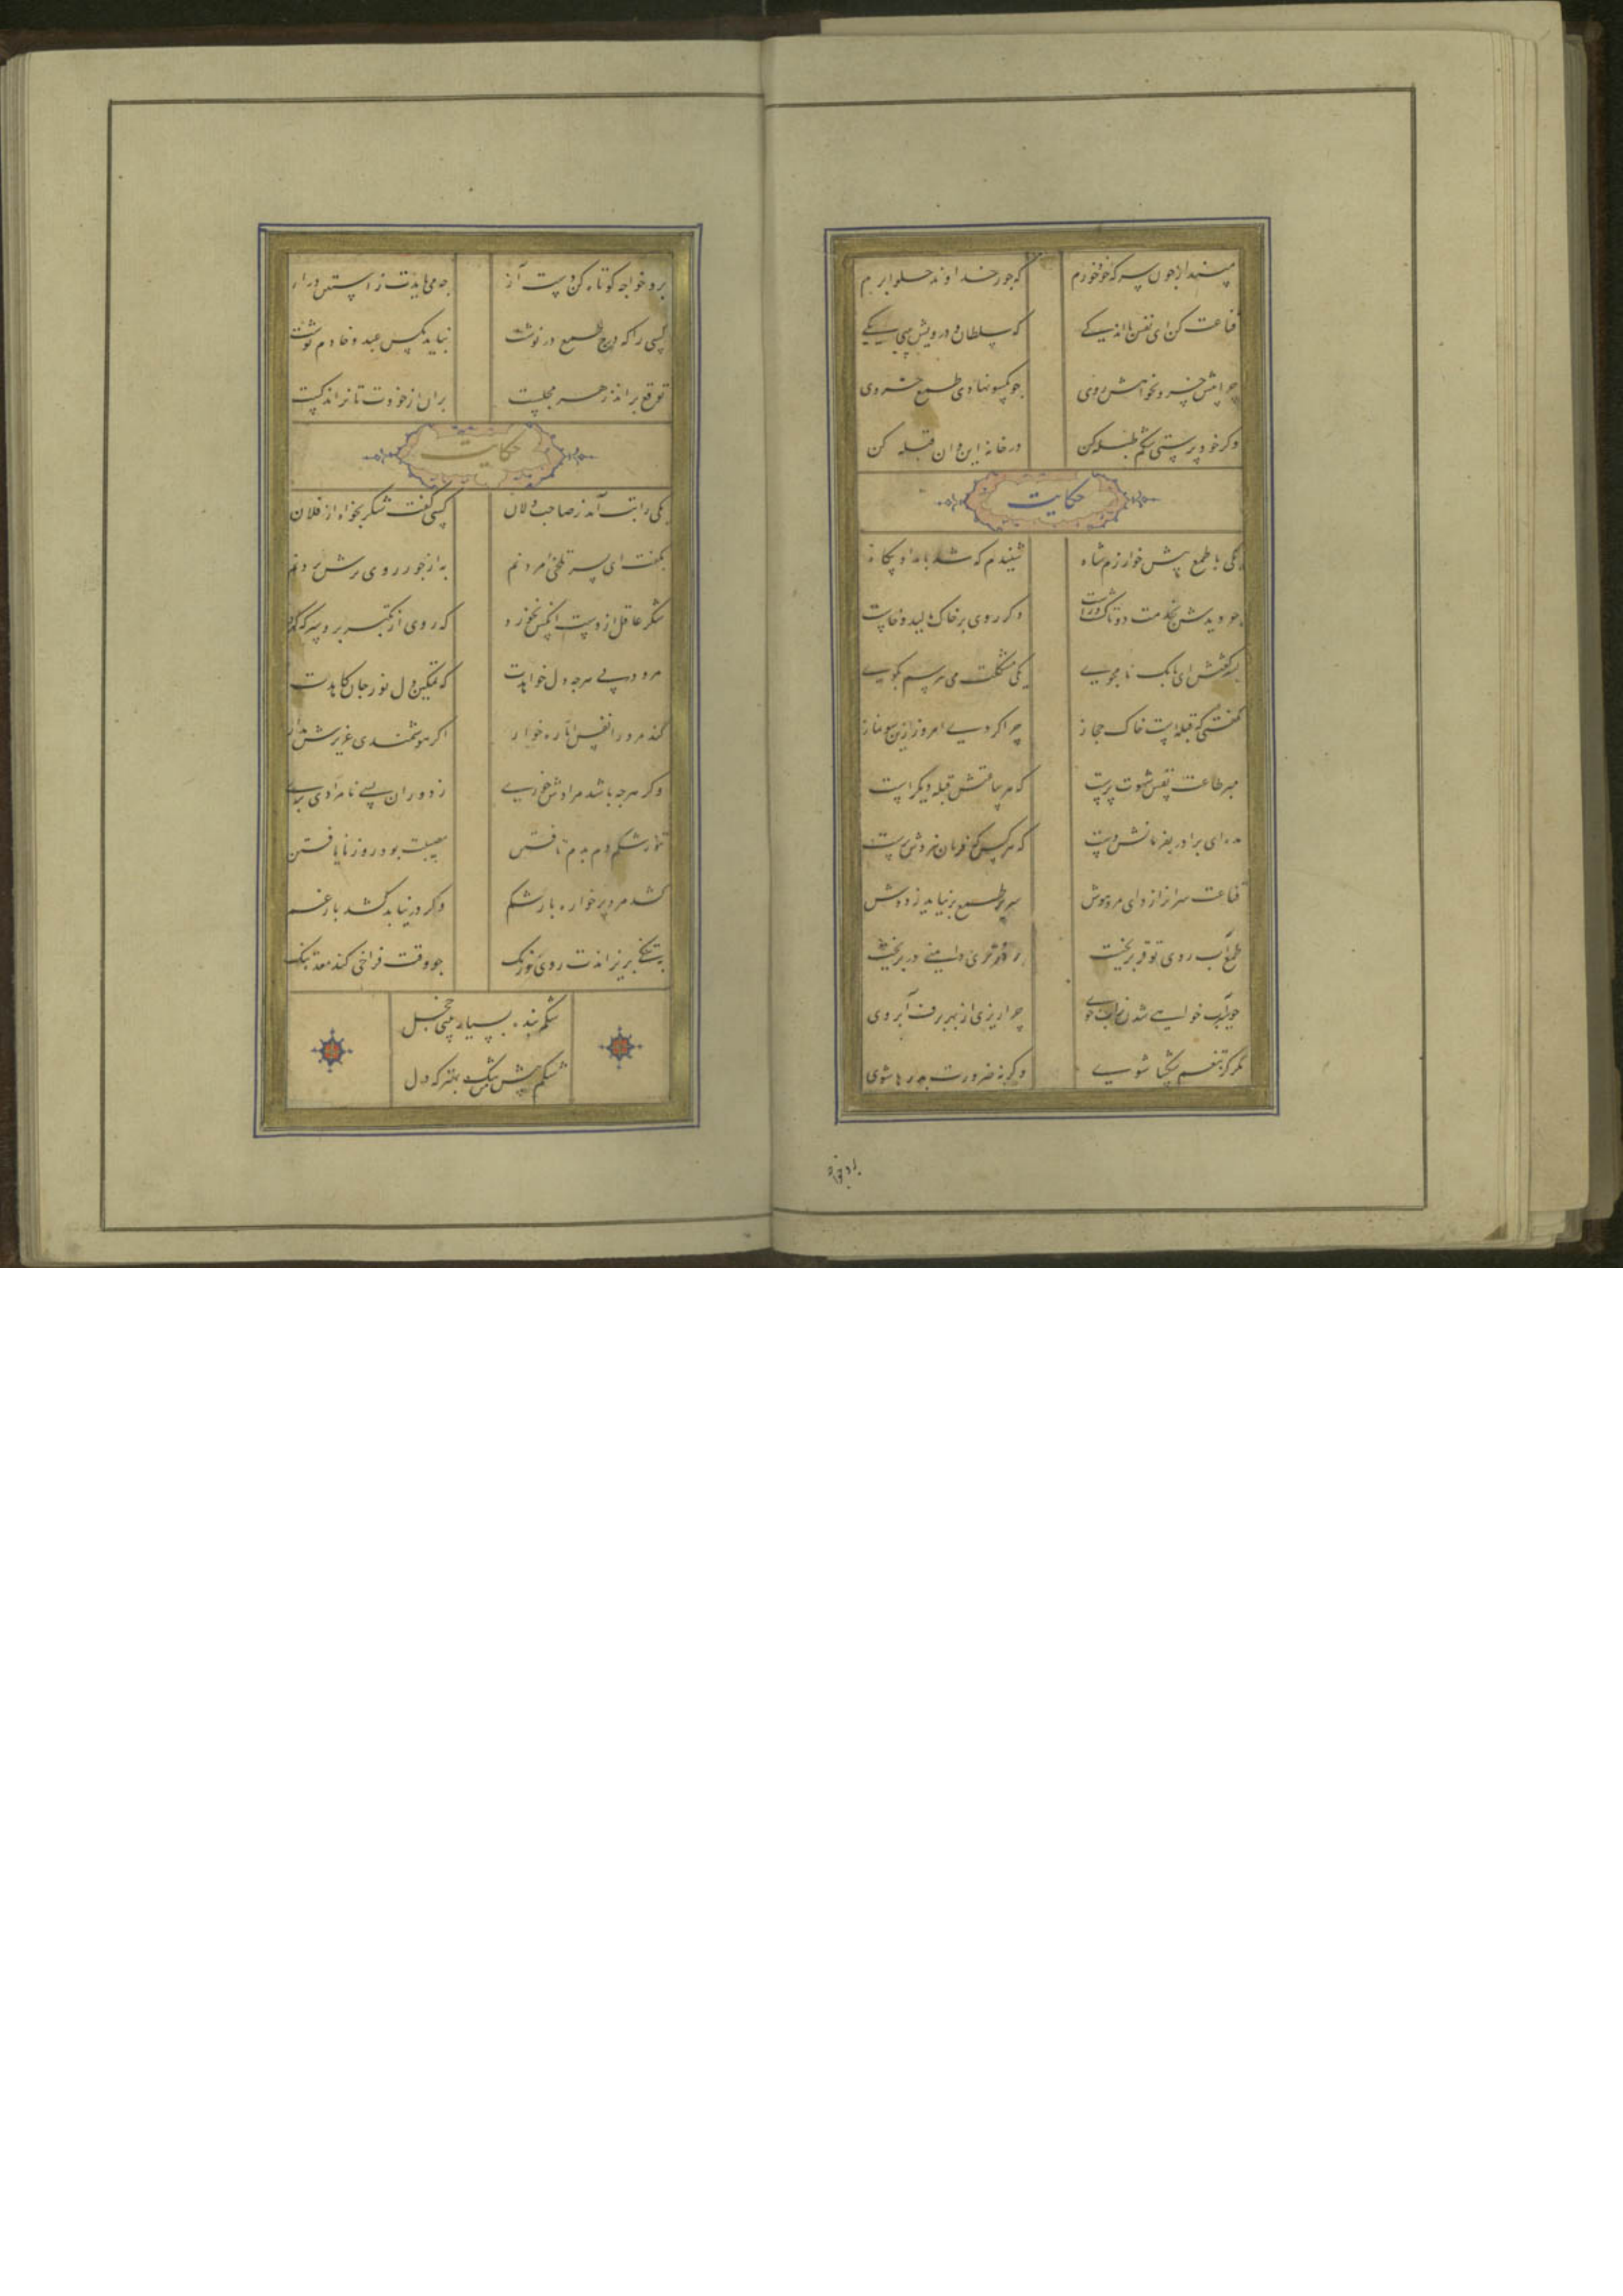 مپندار چون سرکه خود خورم که جور خداوند حلوا برم
قناعت کن ای نفس بر اندکی که سلطان و درویش بینی یکی
چرا پیش خسرو بخواهش روی چو یکسو نهادی طمع خسروی
وگر خود پرستی شکم طبله کن در خانه این و آن قبله کن
حکایت
یکی با طمع پیش خوارزم شاه شنیدم که شد بامدادی پگاه
چو دیدش بخدمت دوتا گشت و راست دگر روی بر خاک مالید و خاست
پسر گفتش ای بابک نامجوی یکی مشکلت می بپرسم بگوی
نگفتی که قبله است خاک حجاز چرا کردی امروز ازین سو نماز
مبر طاعت نفس شهوت پرست که هر ساعتش قبله دیگر است
مبر ای برادر بفرمانش دست که هر کس که فرمان نبردش برست
قناعت سرافرازد ای مرد هوش سر پر طمع بر نیاید ز دوش
طمع آب روی توقر بریخت برای دو جو دامنی در بریخت
چو سیراب خواهی شدن ز آب جوی چرا ریزی از بهر برف آبروی
مگر کز تنعم شکیبا شوی وگرنه ضرورت بدرها شوی
برو خواجه
برو خواجه کوتاه کن دست آز چه می بایدت ز آستین دراز
کسی را که درج طمع درنوشت نباید بکس عبد و خادم نوشت
توقع براند ز هر مجلست بران از خودت تا نراند کست
حکایت
یکی را تب آمد ز صاحب دلان کسی گفت شکر بخواه از فلان
بگفت ای پسر تلخی مردنم به از جور روی ترش بردنم
شکر عاقل از دست آنکس نخورد که روی از تکبر برو سرکه کرد
مرو در پی هر چه دل خواهدت که تمکین دل نور جان کاهدت
کند مرد را نفس اماره خوار اگر هوشمندی عزیزش مدار
وگر هر چه باشد مرادش خوری ز دوران بسی نامرادی بری
تنور شکم دم بدم تافتن مصیبت بود روز نایافتن
کشد مرد پرخواره بار شکم وگر در نیابد کشد بار غم
بتنگی بریزاندت روی رنگ چو وقت فراخی کند معده تنگ
شکم بنده بسیار بینی خجل
شکم پیش من تنگ بهتر که دل